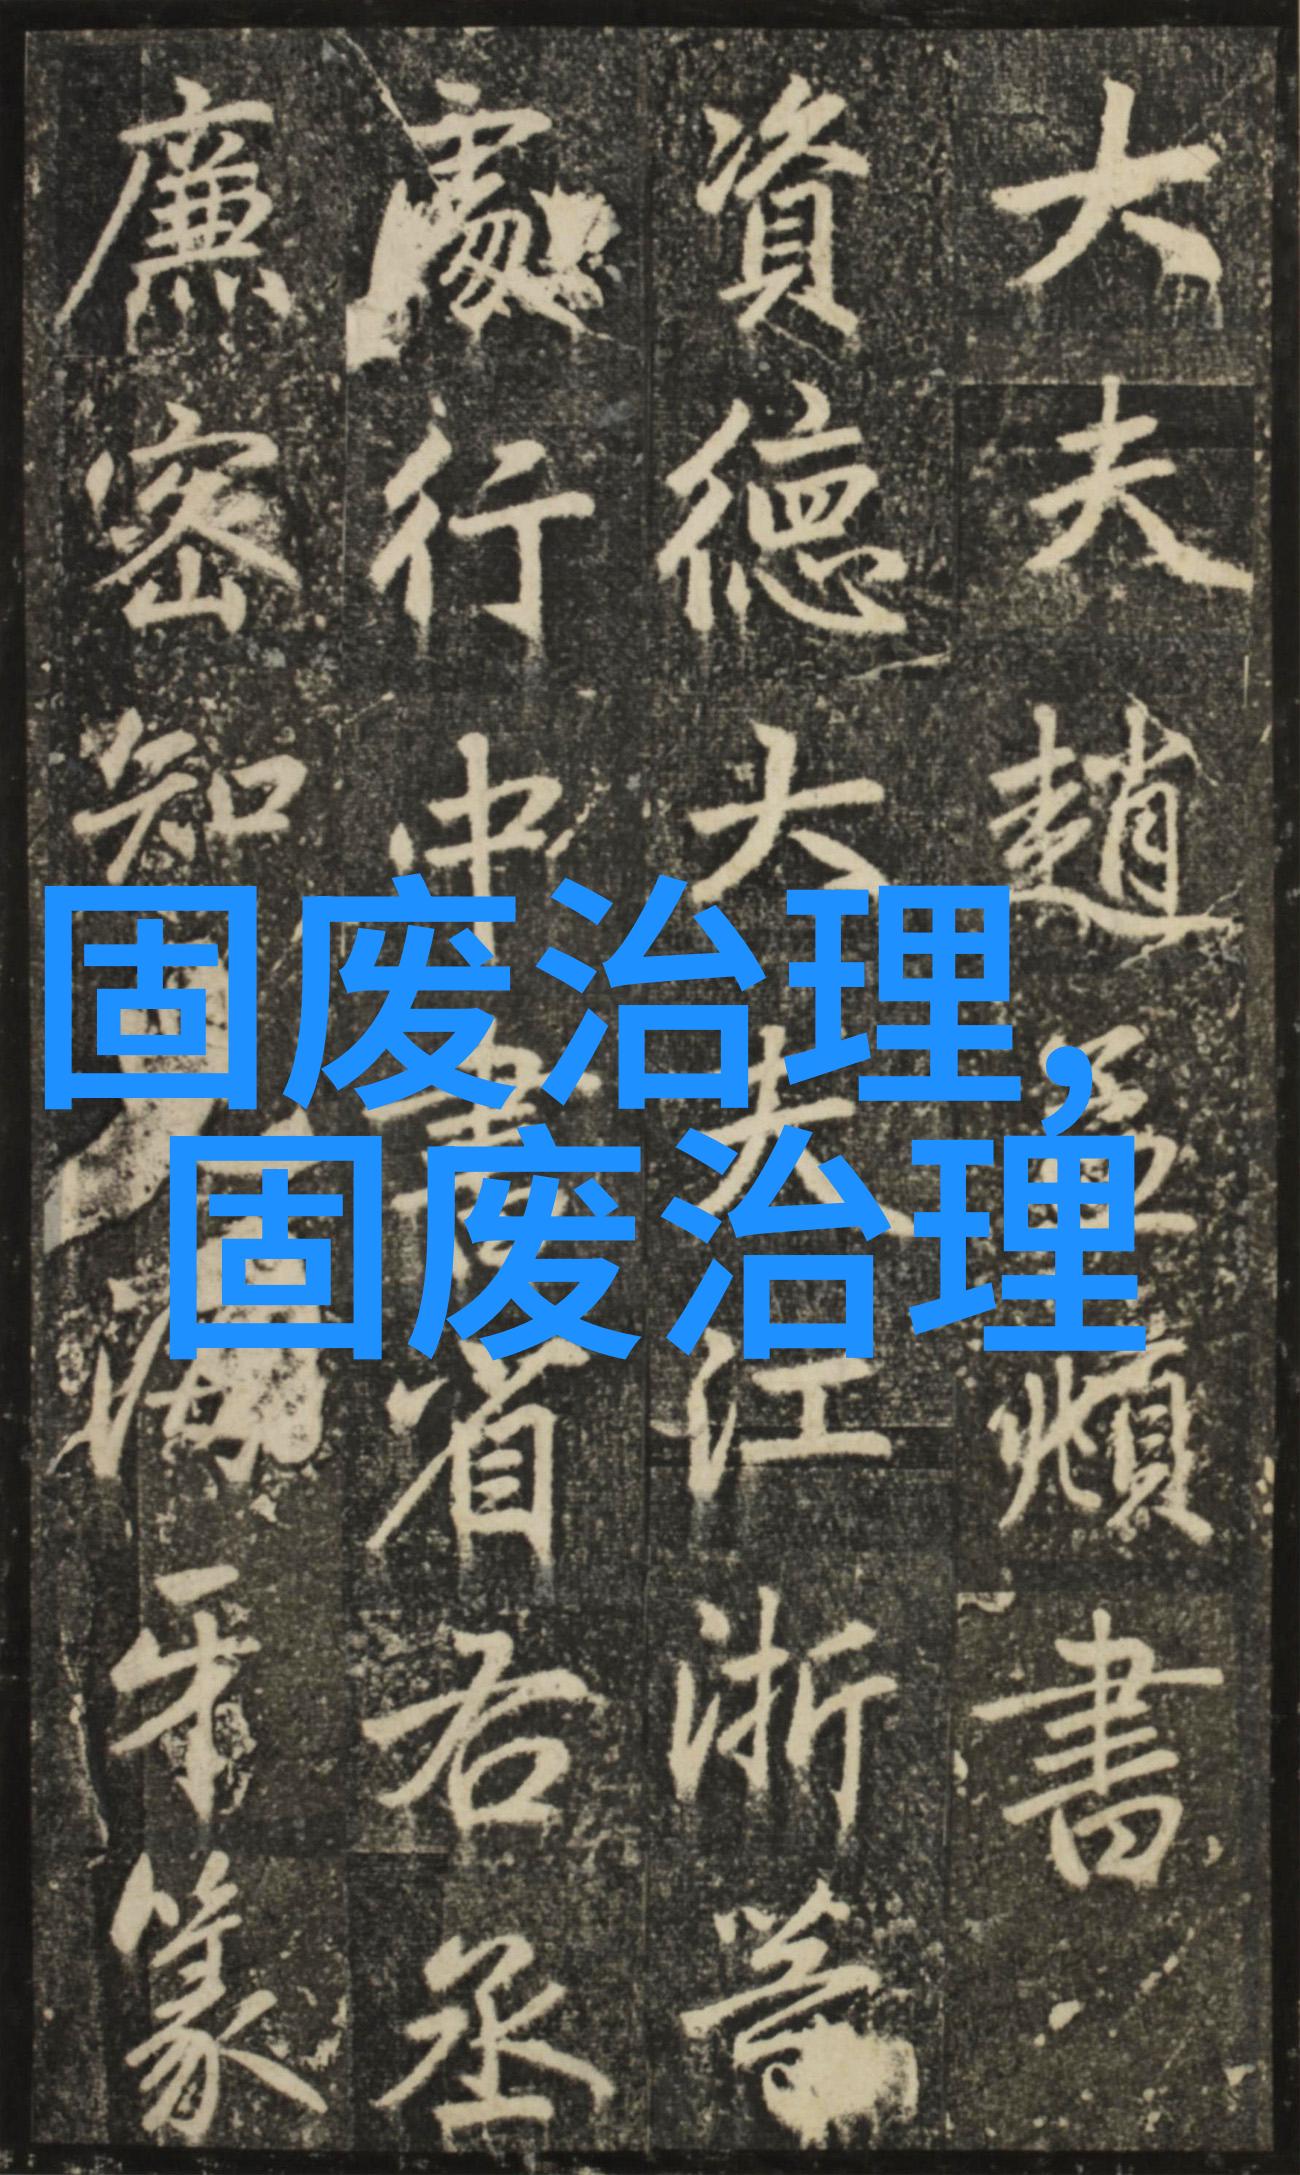 固废治理,
固废治理
大夫趙孟頫書
資德大夫江浙等
處行中書省右丞
廉密知海牙篆